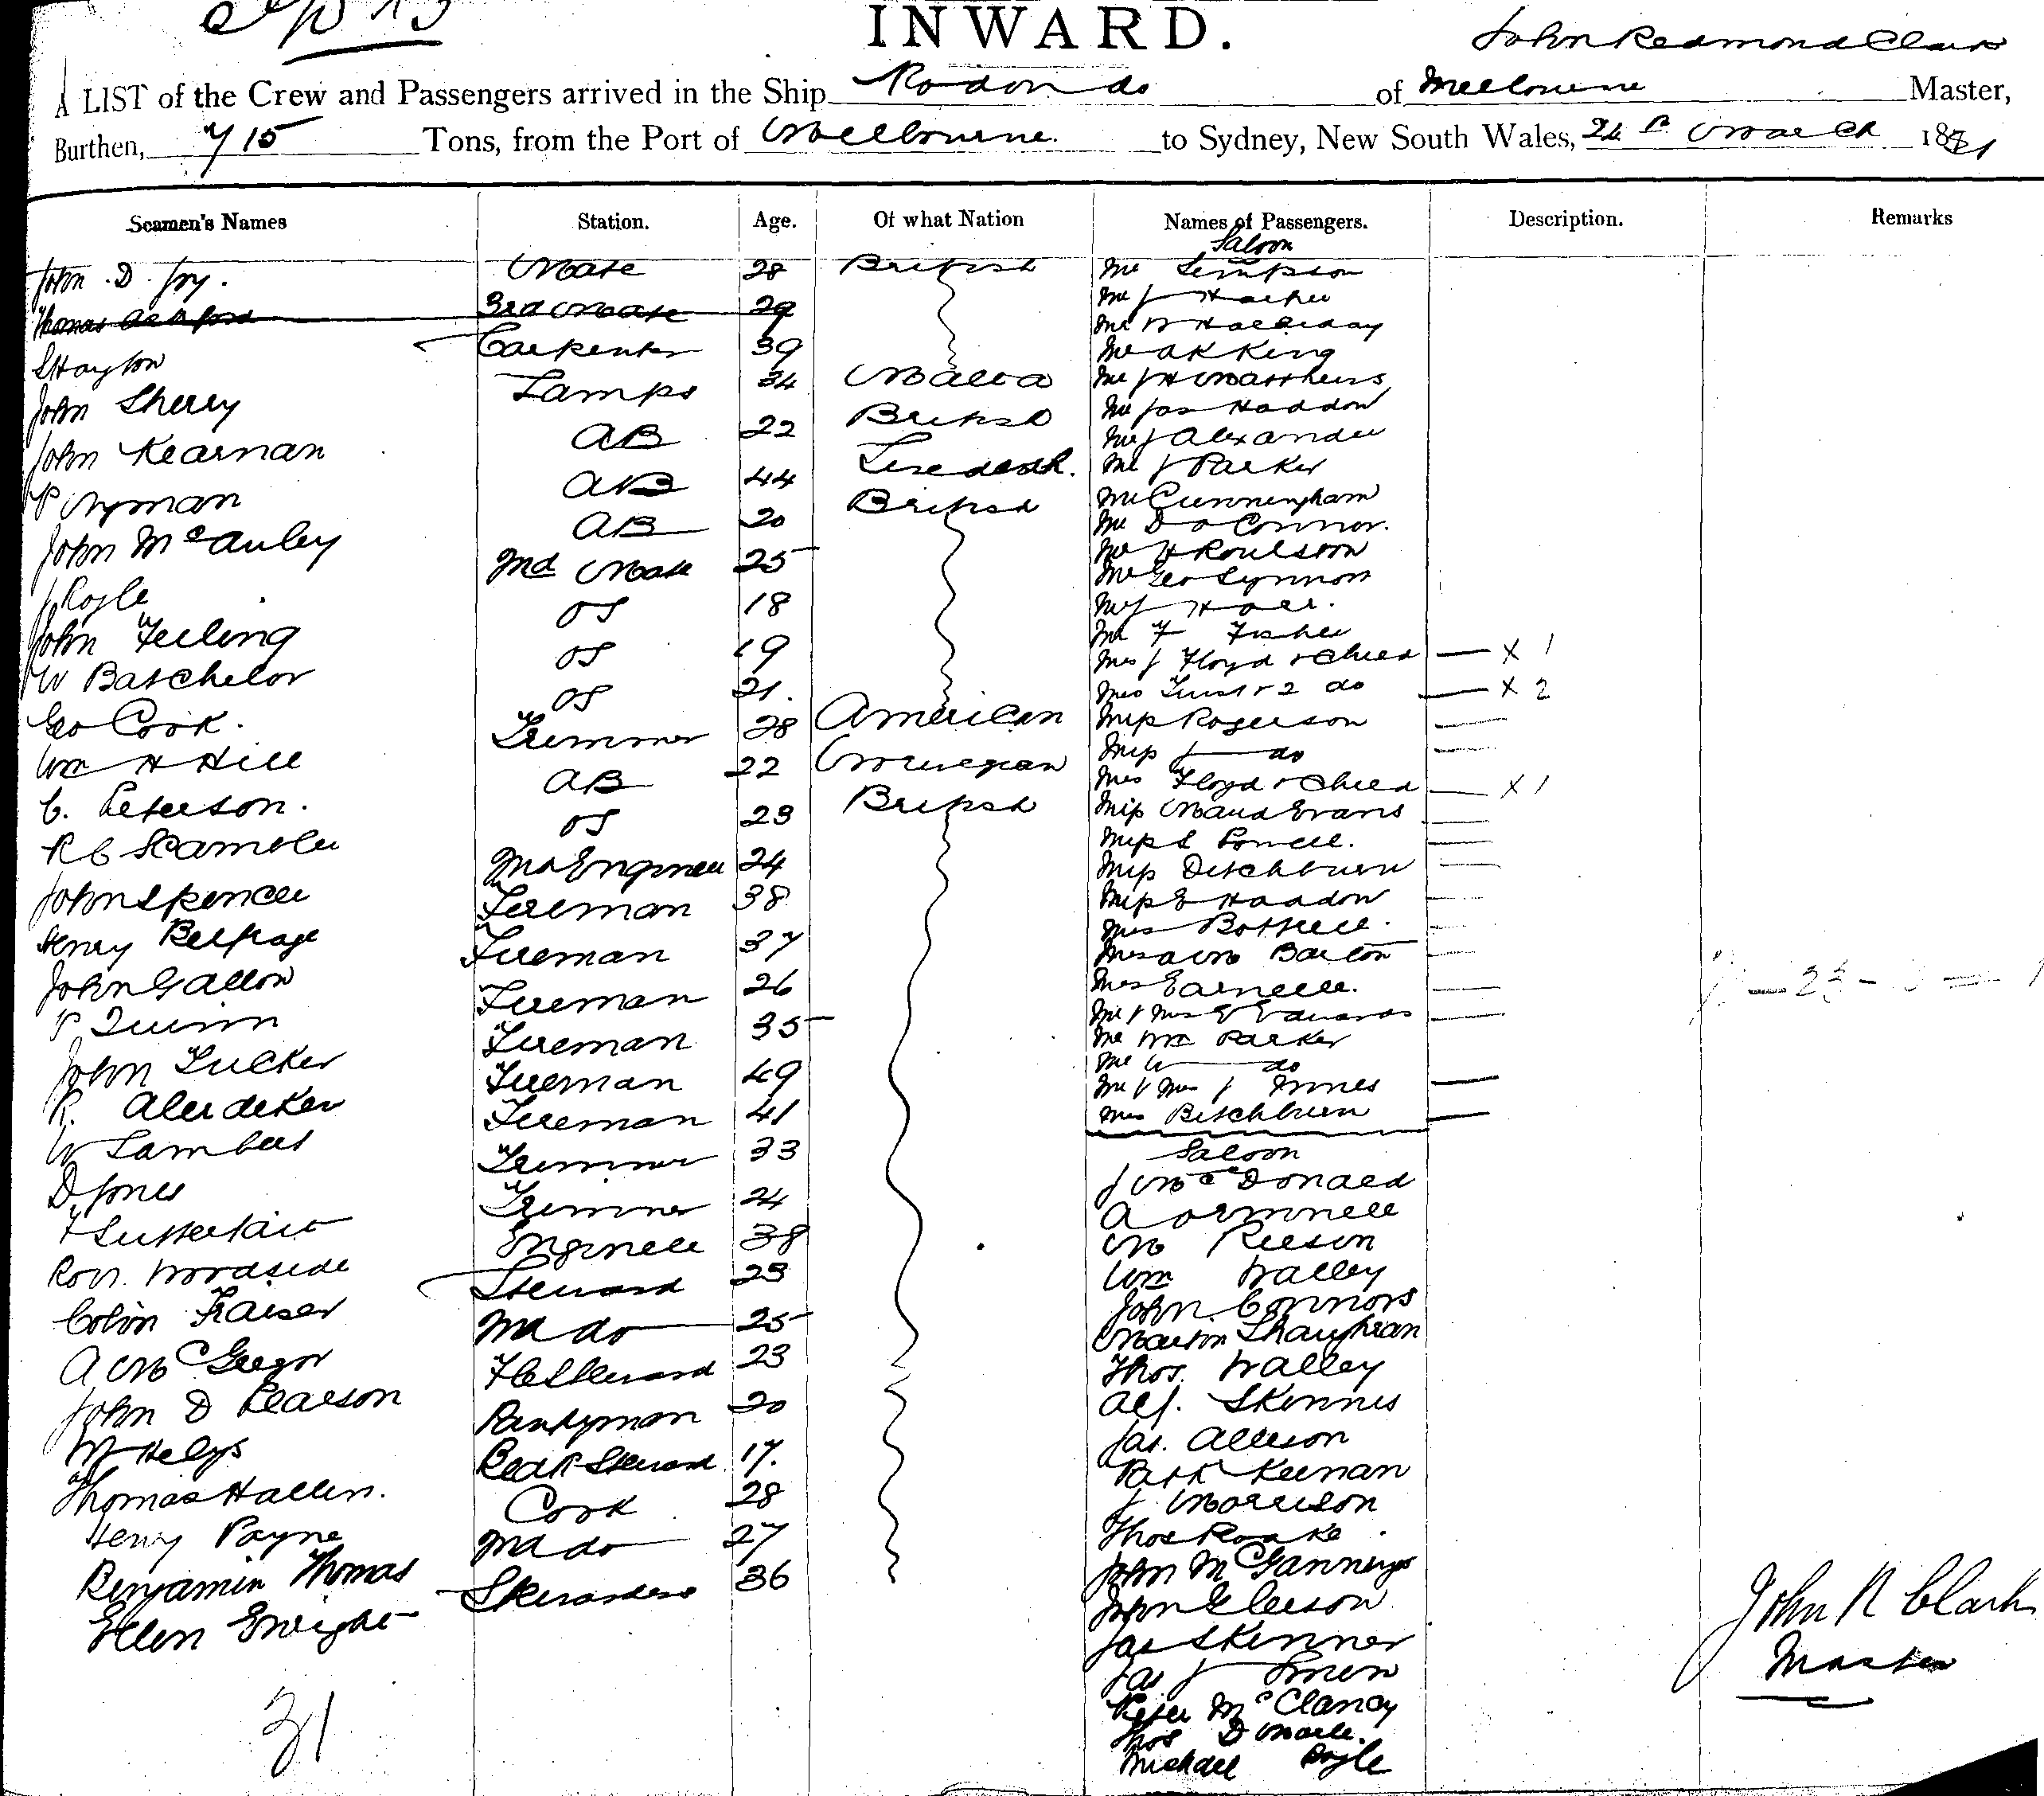 INWARD.
John Redmond Clark
A LIST of the Crew and Passengers arrived in the Ship Rodondo of Melbourne Master,
Burthen, 715 Tons, from the Port of Melbourne to Sydney, New South Wales, 24th March 1881
Seamen's Names Station. Age. Of what Nation Names of Passengers. Description. Remarks
Saloon
John D Joy. Mate 28 British Mr Simpson
Thomas Ashford 3rd Mate 29 Mr J Harper
S Hayton Carpenter 39 Mr W Halliday
John Sherry Lamps 34 Malta Mr A K King
John Kearnan AB 22 British Mr J H Matthews
P Nyman AB 44 Mr Jas Haddon
John McAuley AB 20 British Mr J Alexander
J Royle 2nd Mate 25 Mr J Parker
John Feiling OS 18 Mr Cunningham
W Batchelor OS 19 Mr D O Connor.
Geo Cook. OS 21. Mr H Roulston
Wm H Hill Trimmer 28 American Mr Geo Synnott
C. Peterson. AB 22 Norwegian Mr J Hall.
R C Scambler OS 23 British Mr F Fisher
John Spencer 2nd Engineer 24 Mrs J Floyd & Child — x 1
Henry Belfrage Fireman 38 Mrs & 2 do — x 2
John Gallon Fireman 37 Miss Rogerson —
P Quinn Fireman 26 Miss J do —
John Tucker Fireman 35 Mrs Floyd & Child — x 1
R. Fireman 49 Miss Maud Evans —
W Lambert Fireman 41 Miss S Powell. —
D Jones Trimmer 33 Miss Ditchburn —
Trimmer 24 Miss E Haddon —
Robt. Woodside Engineer 38 Mrs Bottrell. —
Colin Fraiser Steward 23 Mrs A M Barton —
A McGregor 2nd do 25 Mrs —
John D Pearson F C Steward 23 Mr & Mrs E Edwards —
W Helys Pantryman 20 Mr Wm Parker
Thomas Hallen. Bedr Steward 17. Mr W do
Henry Payne Cook 28 Mr & Mrs J Innes —
Benjamin Thomas 2nd do 27 Mrs Ditchburn —
Ellen Enright Stewardess 36
Saloon
J McDonald
A
M Reeson
Wm Walley
John Connors
Martin Shaughnan
Thos. Walley
Alf. Skinnis
Jas. Allison
Patk Keenan
J Morrison
Thos Roake
John McGannings
John Gleeson
Jas Skinner
Jas J
Peter McClancy
Thos D
Michael Boyle
31
John R Clark
Master